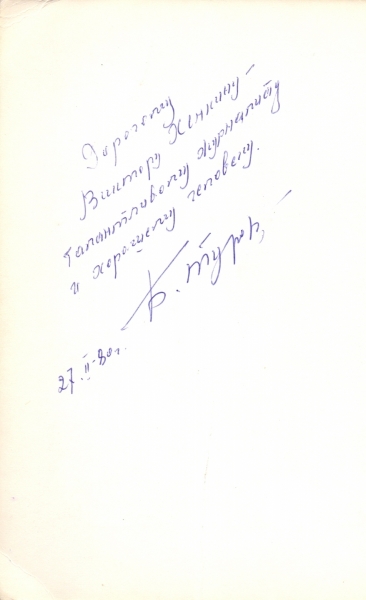 Дорогому
Виктору Хинкину -
талантливому журналисту
и хорошему человеку.
27.II-80 г.